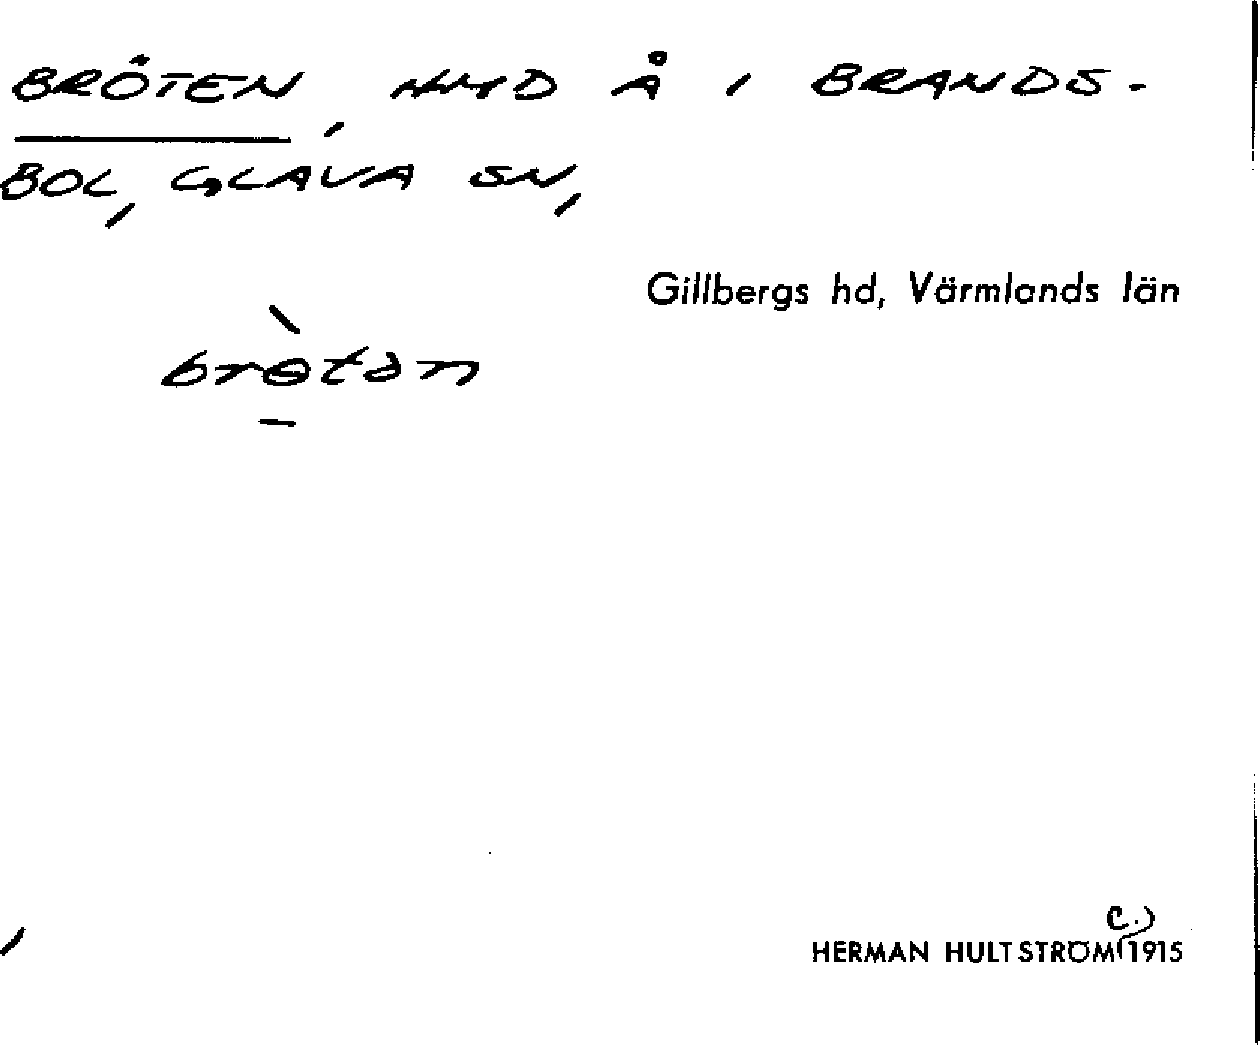 BRÖTEN, HMD Å I BRANDS-
BOL, GLAVA SN,
Gillbergs hd, Värmlands län
brɵ̀tən
HERMAN HULTSTRÖM (c.) 1915